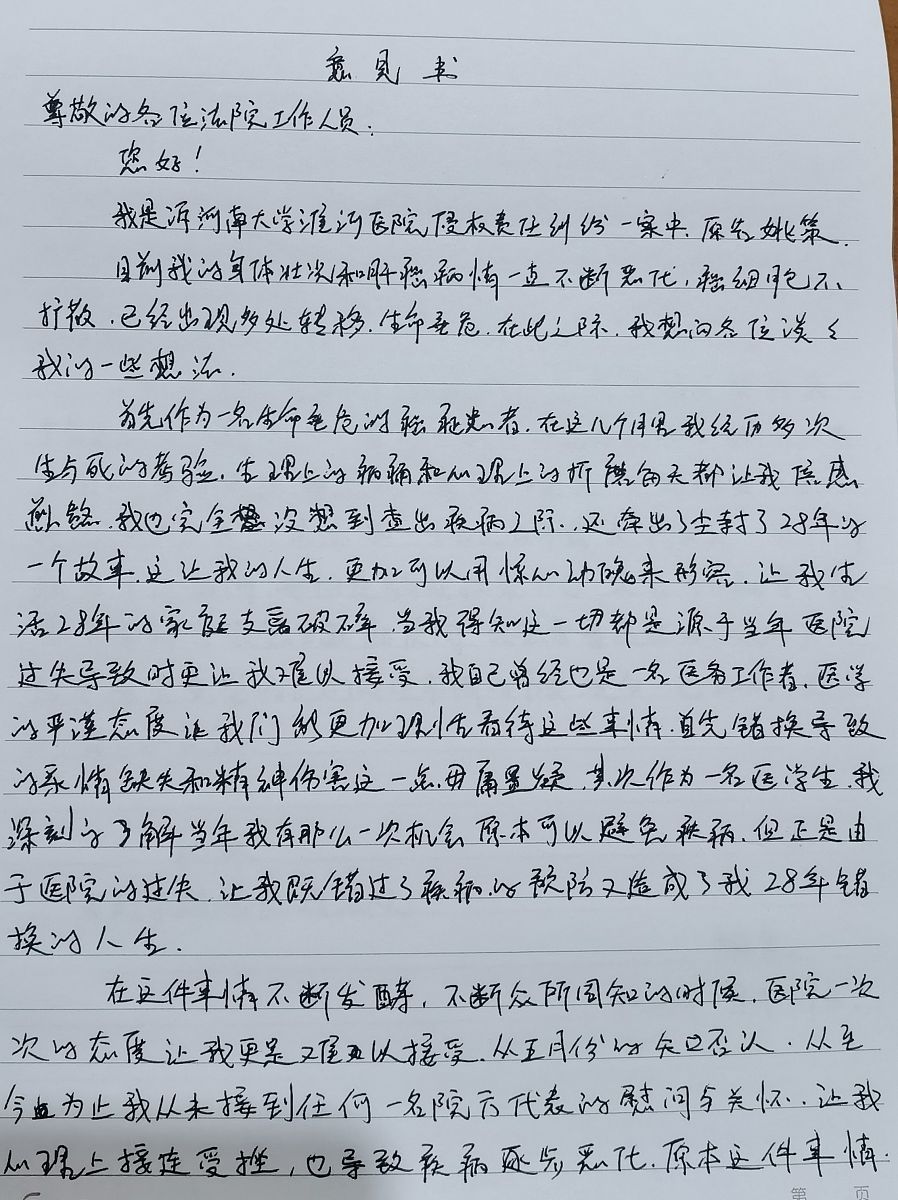 意见书
尊敬的各位法院工作人员:
您好!
我是诉河南大学淮河医院侵权责任纠纷一案中原告姚策.
目前我的身体状况和肝癌病情一直不断恶化,癌细胞不、
扩散.已经出现多处转移.生命垂危.在此之际.我想向各位谈く
我的一些想法.
首先作为一名生命垂危的癌症患者.在这几个月里我经历多次
生与死的考验.生理上的病痛和心理上的折磨每天都让我倍感
煎熬.我也完全没想到查出疾病之际.还牵出了尘封了28年的
一个故事.这让我的人生.更加可以用惊心动魄来形容.让我生
活28年的家庭支离破碎.当我得知这一切都是源于当年医院
过失导致时更让我难以接受.我自己曾经也是一名医务工作者.医学
的严谨态度让我们能更加理性看待这些事情.首先错换导致
的亲情缺失和精神伤害这一点毋庸置疑.其次作为一名医学生.我
深刻的了解当年我有那么一次机会原本可以避免疾病.但正是由
于医院的过失.让我既错过了疾病的预防又造成了我28年错
换的人生.
在这件事情不断发酵,不断众所周知的时候.医院一次
次的态度让我更是难以接受.从五月份的矢口否认.从至
今为止我从未接到任何一名院方代表的慰问与关怀..让我
心理上接连受挫,也导致疾病逐步恶化.原本这件事情.
第 页